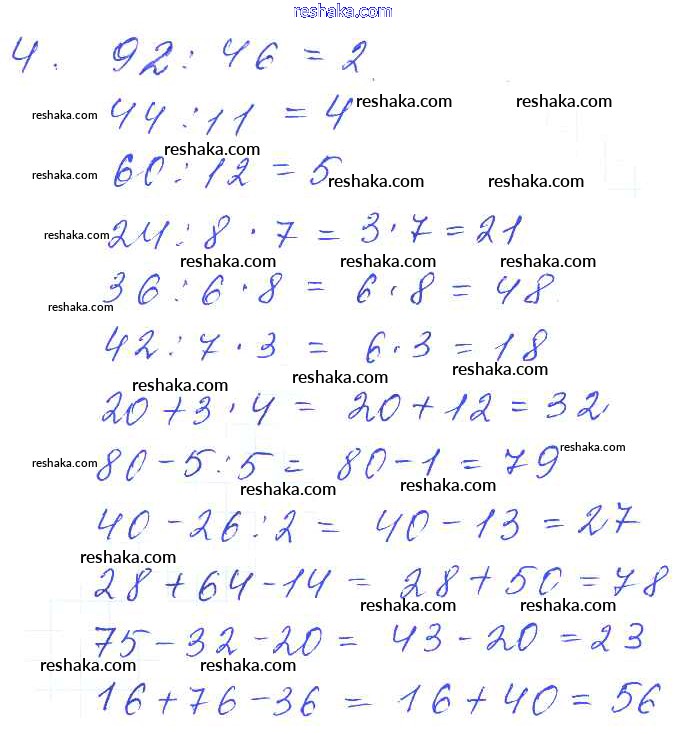 reshaka.com
4. 92 : 46 = 2
reshaka.com reshaka.com
reshaka.com 44 : 11 = 4
reshaka.com
reshaka.com 60 : 12 = 5 reshaka.com reshaka.com
reshaka.com 24 : 8 · 7 = 3 · 7 = 21
reshaka.com reshaka.com reshaka.com
36 : 6 · 8 = 6 · 8 = 48
reshaka.com
42 : 7 · 3 = 6 · 3 = 18
reshaka.com reshaka.com reshaka.com
20 + 3 · 4 = 20 + 12 = 32
reshaka.com 80 - 5 : 5 = 80 - 1 = 79 reshaka.com
reshaka.com reshaka.com
40 - 26 : 2 = 40 - 13 = 27
reshaka.com
28 + 64 - 14 = 28 + 50 = 78
reshaka.com reshaka.com
75 - 32 - 20 = 43 - 20 = 23
reshaka.com reshaka.com
16 + 76 - 36 = 16 + 40 = 56